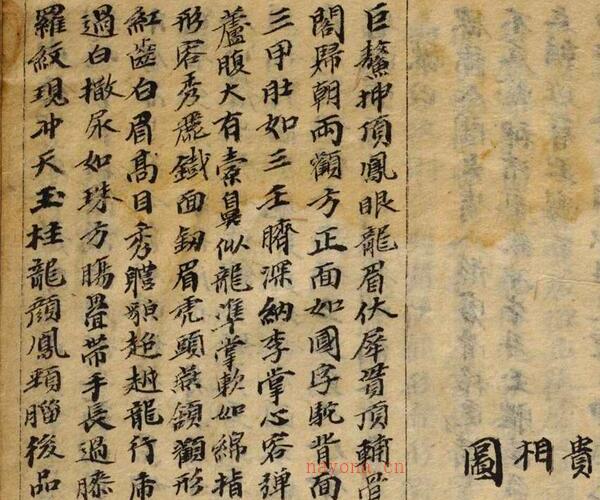 貴相圖
巨鰲抻頂鳳眼龍眉伏犀貫頂輔骨
閣歸朝兩顴方正面如國字駝背面
三甲肚如三壬臍深納李掌心容彈
蘆腹大有橐鼻似龍準掌軟如綿指
形容秀麗鐵面劒眉虎頭燕頷鸛形
紅齒白眉高目秀體貌超越龍行市
過白撒尿如珠方腸疊帶手長過膝
羅紋現冲天玉柱龍顔鳳頸腦後品
nayona.cn